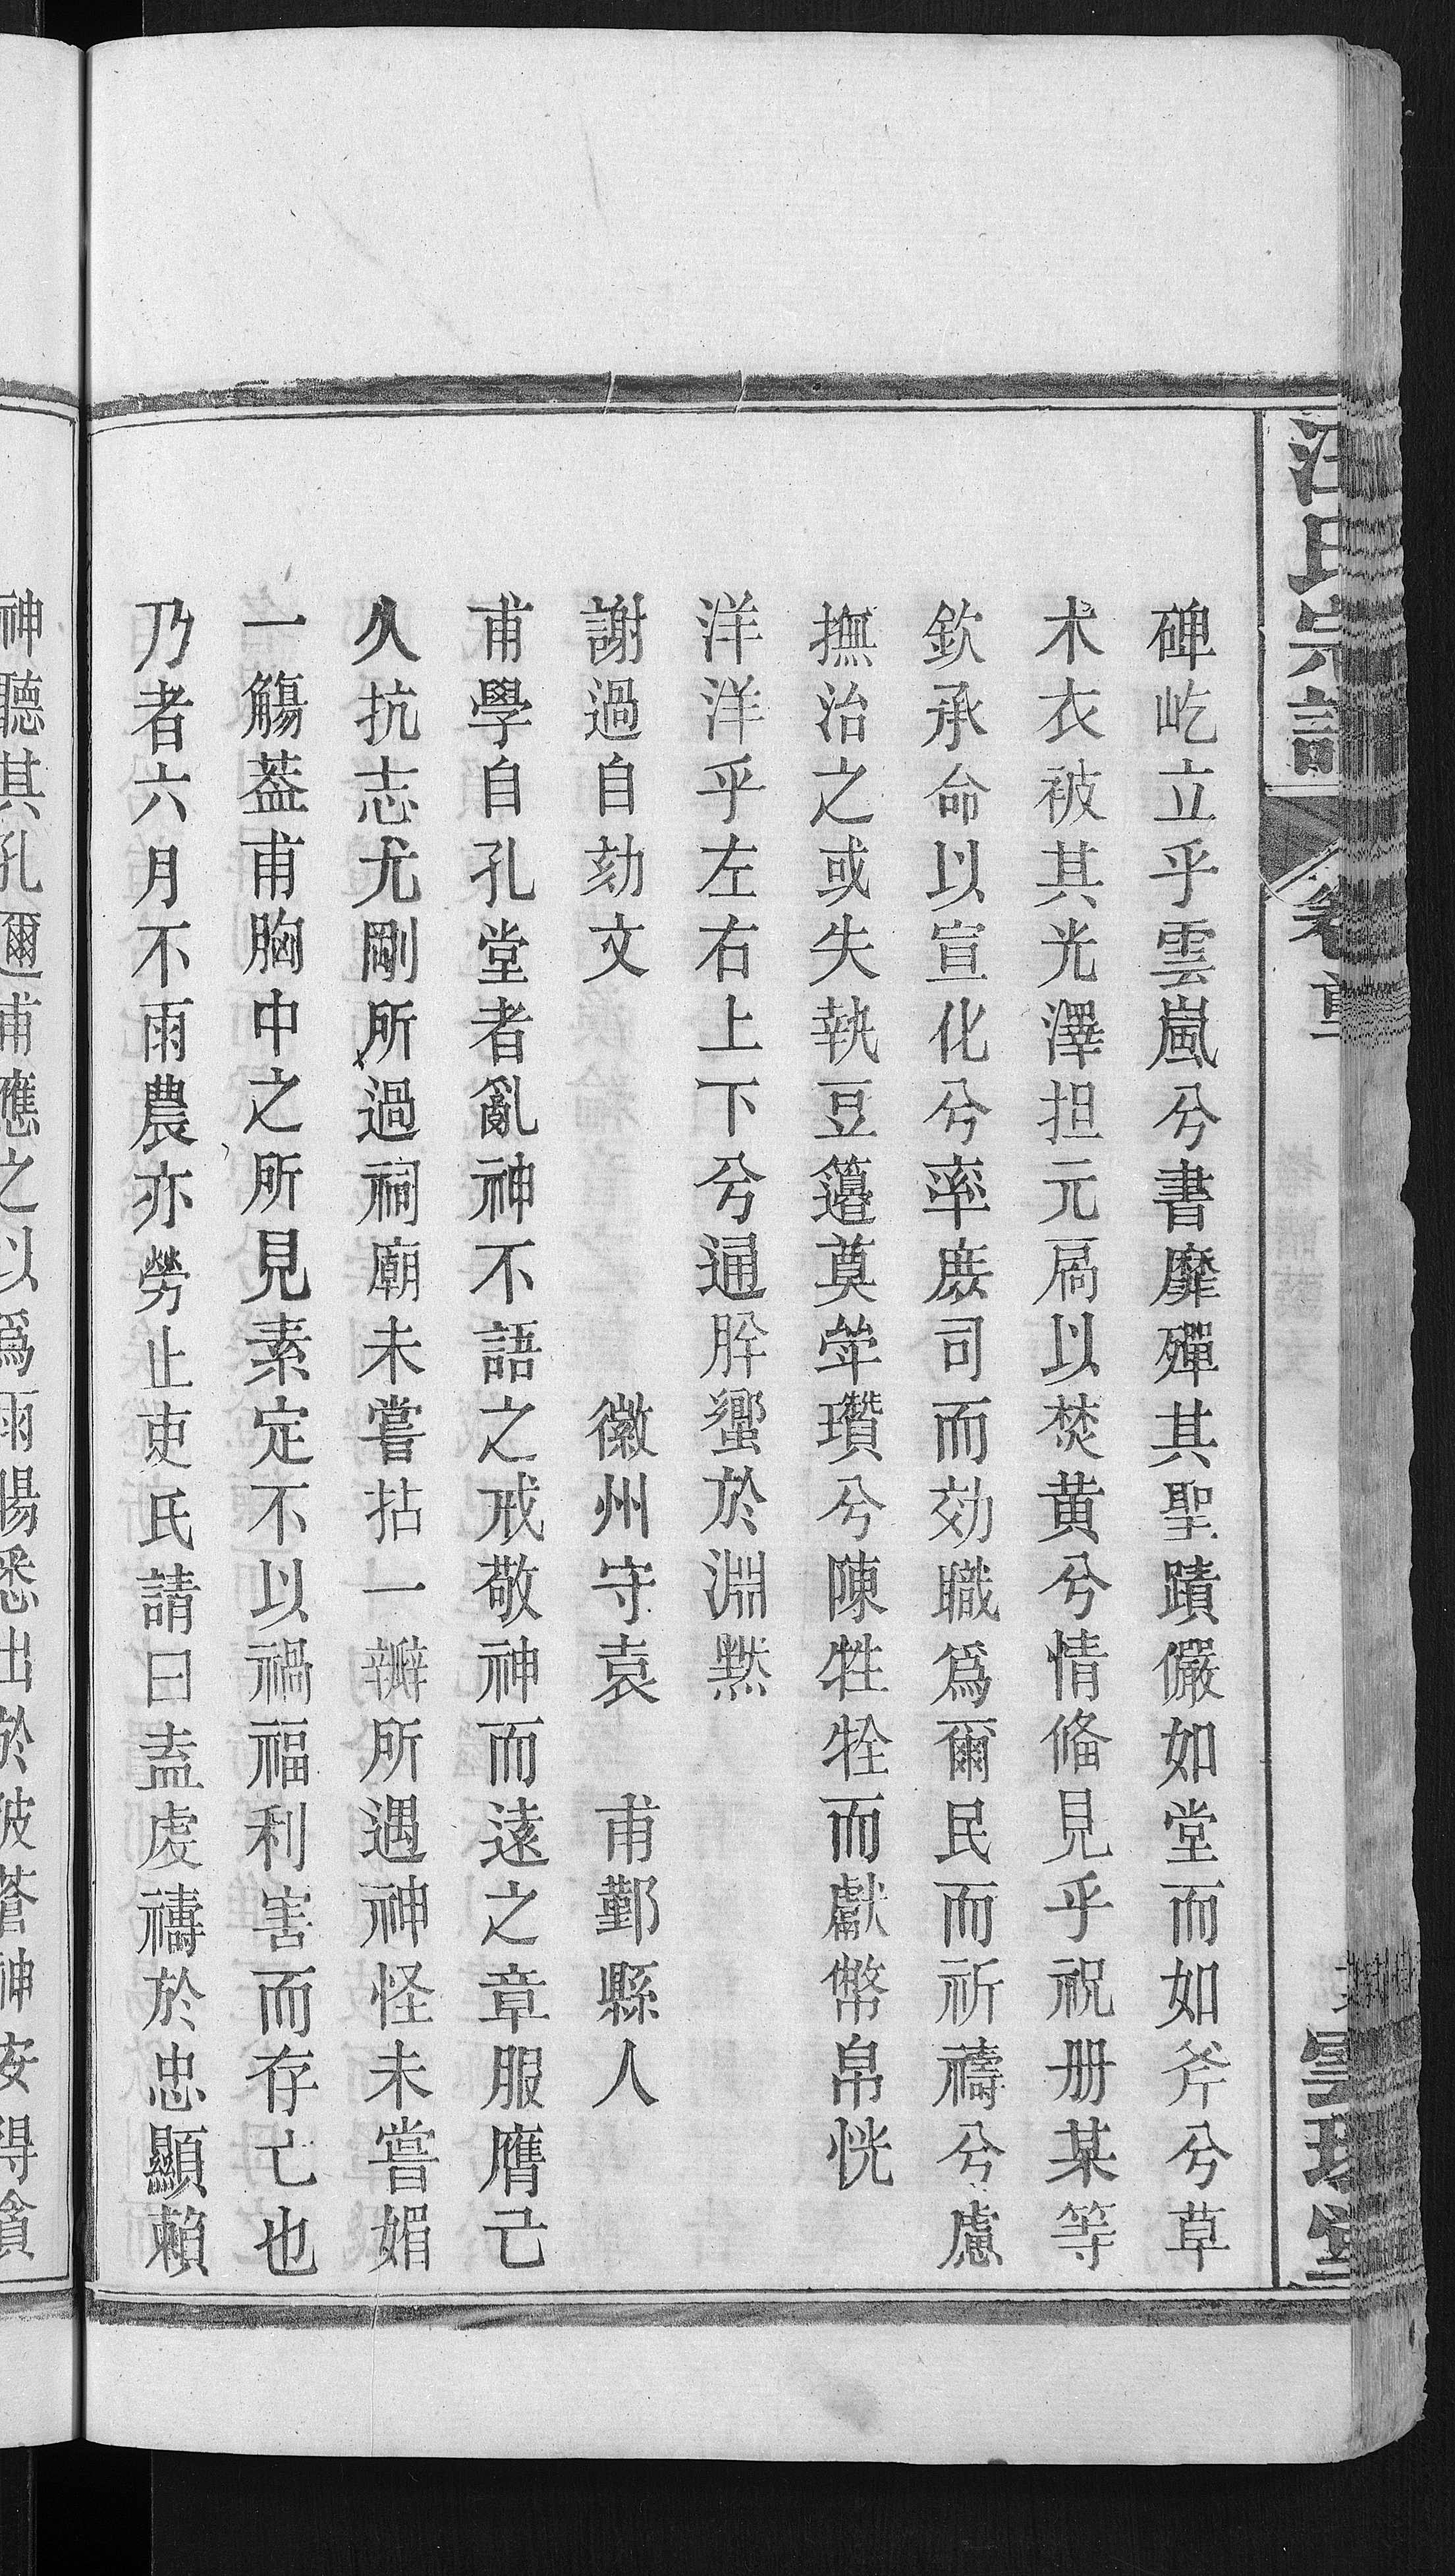 汪氏宗譜
碑屹立乎雲嵐兮書靡殫其聖蹟儼如堂而如斧兮草
木衣被其光澤担元扃以焚黃兮情偹見乎祝册某等
欽承命以宣化兮率庻司而効職爲爾民而祈禱兮慮
撫治之或失執豆籩奠斝瓚兮陳牲牷而獻幣帛恍
洋洋乎左右上下兮通肸蠁於淵黙
謝過自劾文 徽州守袁 甫鄞縣人
甫學自孔堂者亂神不語之戒敬神而遠之章服膺已
久抗志尤剛所過祠廟未嘗拈一瓣所遇神怪未嘗媚
一觴葢甫胸中之所見素定不以禍福利害而存亡也
乃者六月不雨農亦勞止吏民請曰盍虔禱於忠顯賴
神聽其孔邇甫應之以爲雨暘悉出於彼蒼神安得貪